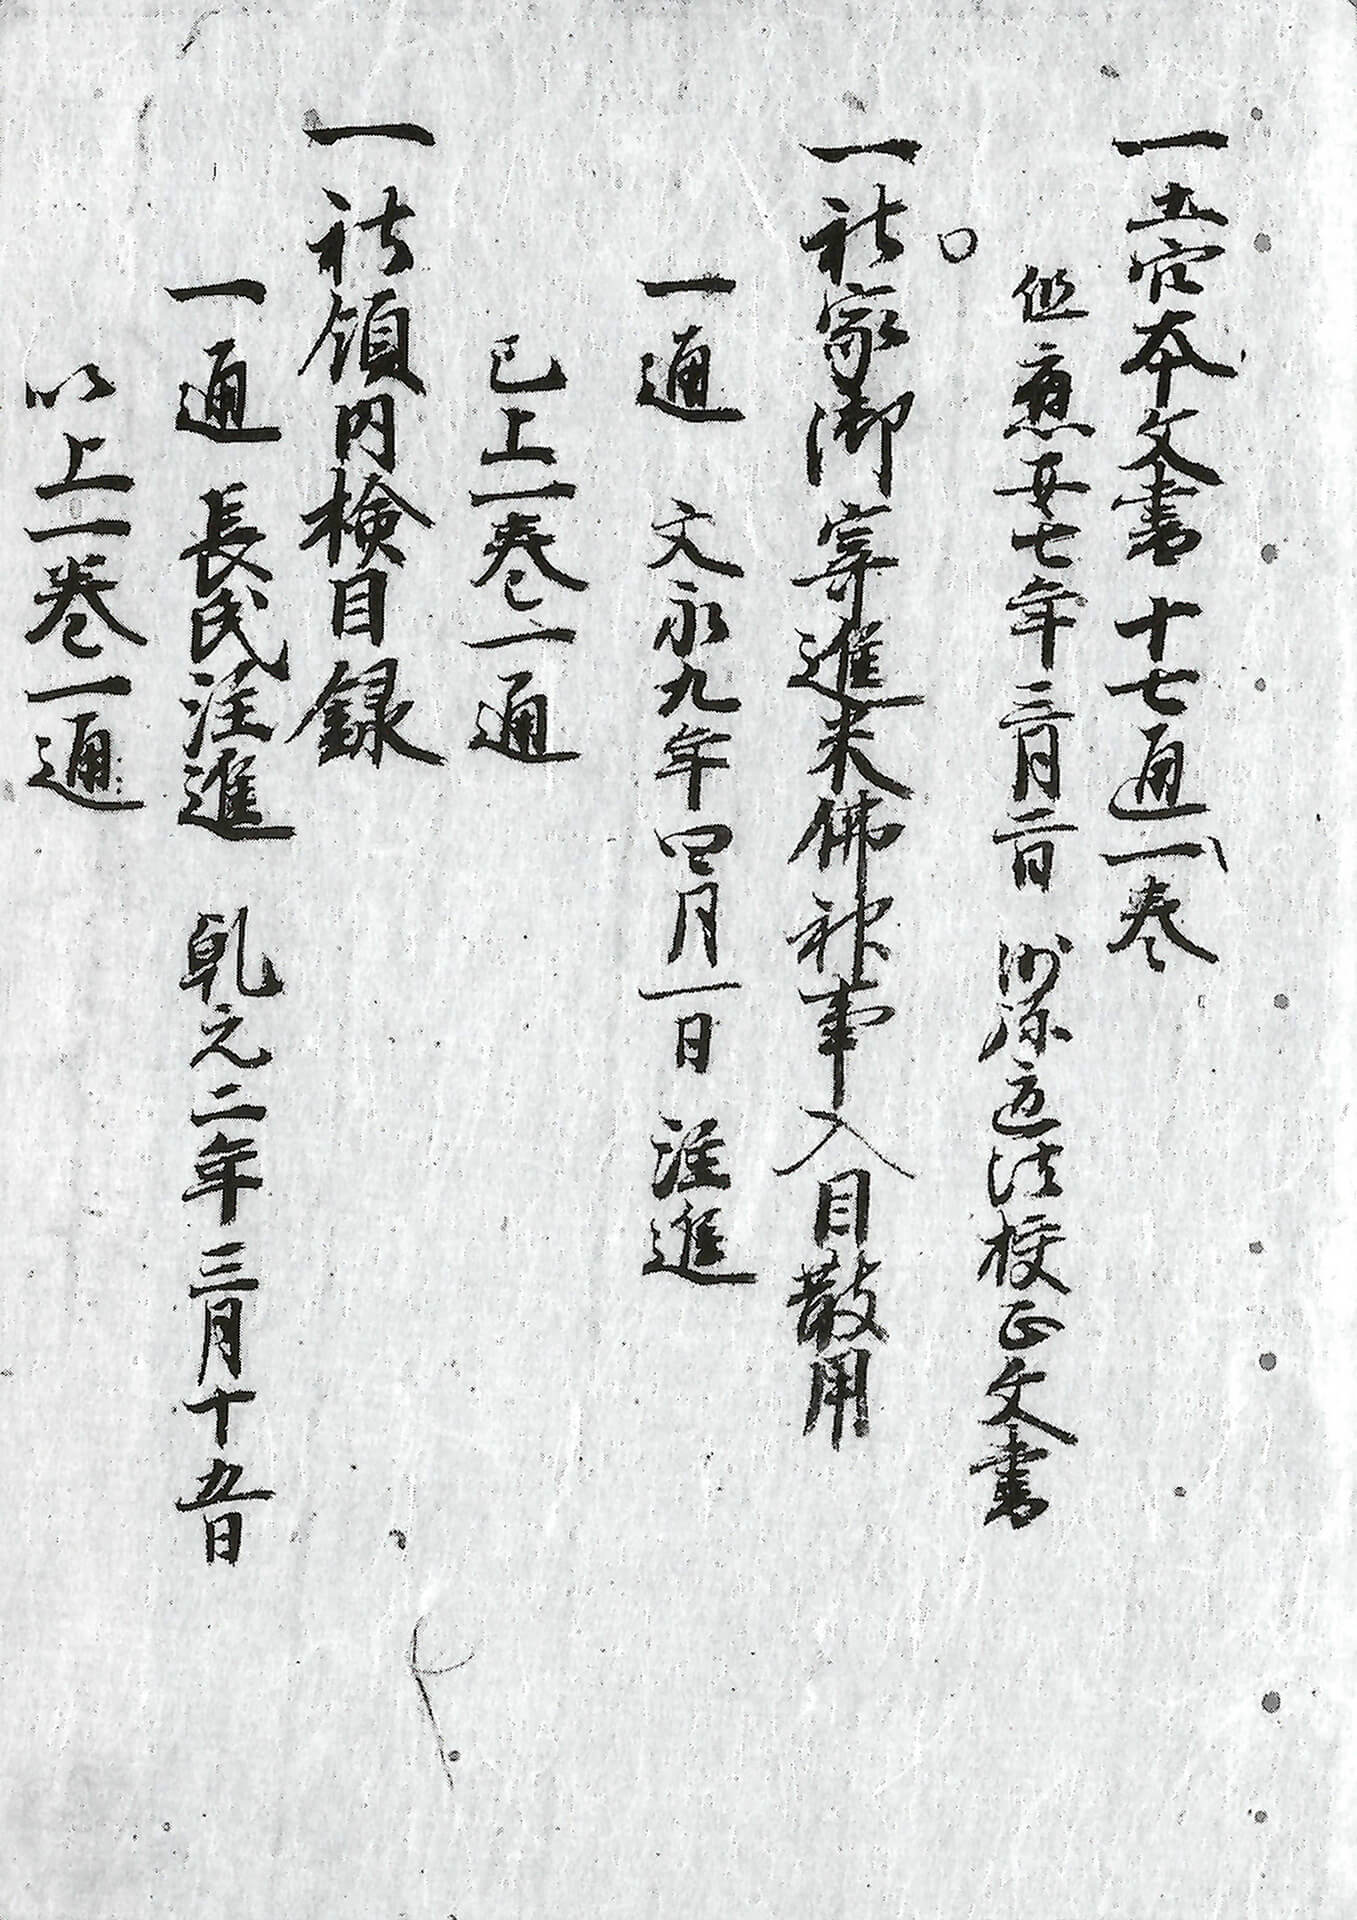 一土穴本文書 十七通一巻
但應安七年三月二日 沙弥道法校正文書
○一社家御寄進米佛神事入目散用
一通 文永九年四月一日 注進
已上一巻一通
一社領内検目録
一通 長氏注進 乾元二年三月十五日
以上一巻一通